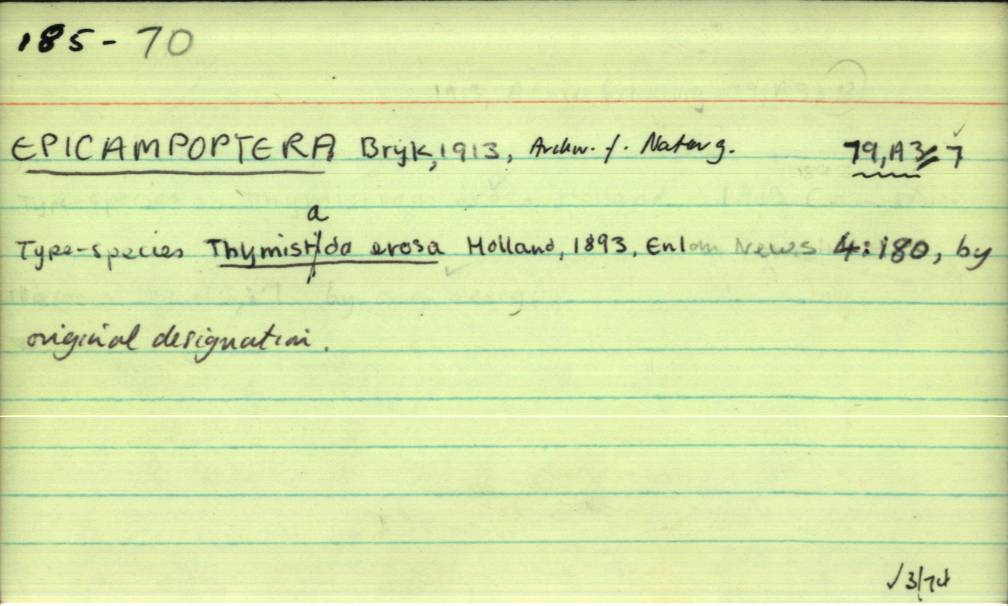 185-70
EPICAMPOPTERA Bryk, 1913, Archiv. f. Naturg. 79, A3: 7
a
Type-species Thymistida erosa Holland, 1893, Entom News 4: 180, by
original designation.
✓ 3/74